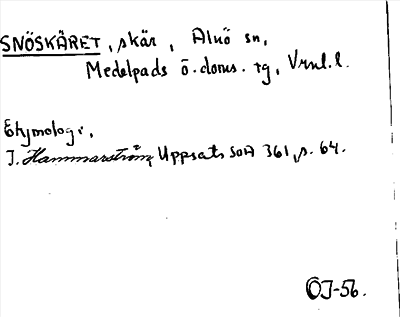 SNÖSKÄRET, skär, Alnö sn,
Medelpads ö. doms. tg, Vrnl. l.
Etymologi,
I. Hammarström, Uppsats SOA 361, s. 64.
OJ-56.